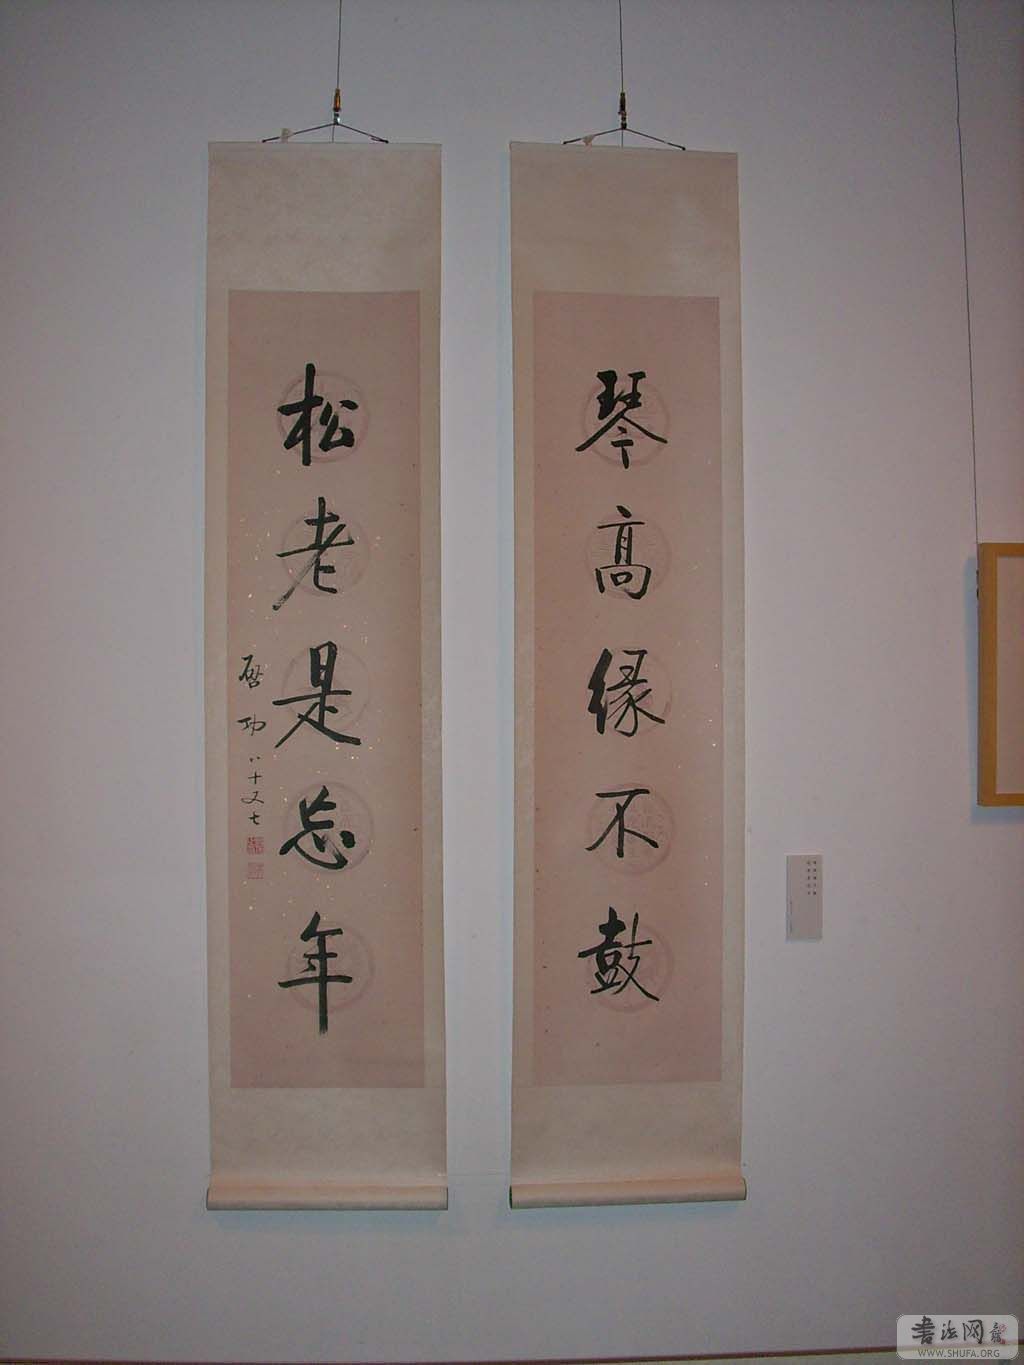 琴高缘不鼓
松老是忘年
启功八十又七
书法网
WWW.SHUFA.ORG